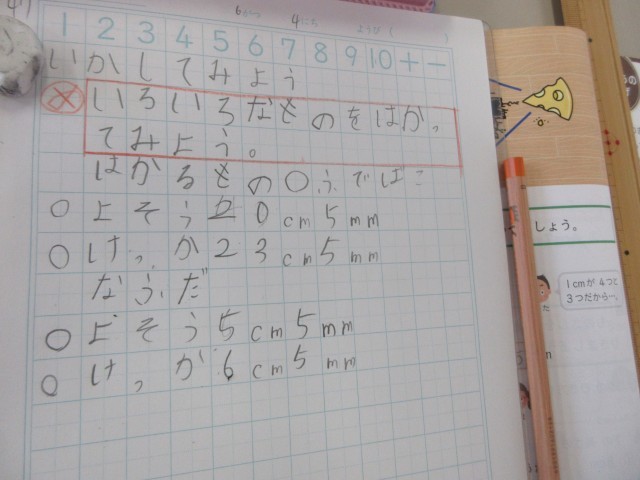 6がつ 4にち ようび( )
1 2 3 4 5 6 7 8 9 10 + −
いかしてみよう
め いろいろなものをはかっ
てみよう。
はかるもの○ふでばこ
○よそう20cm5mm
○けっか23cm5mm
なふだ
○よそう5cm5mm
○けっか6cm5mm
しょう。
1cmが4つと
3つだから…